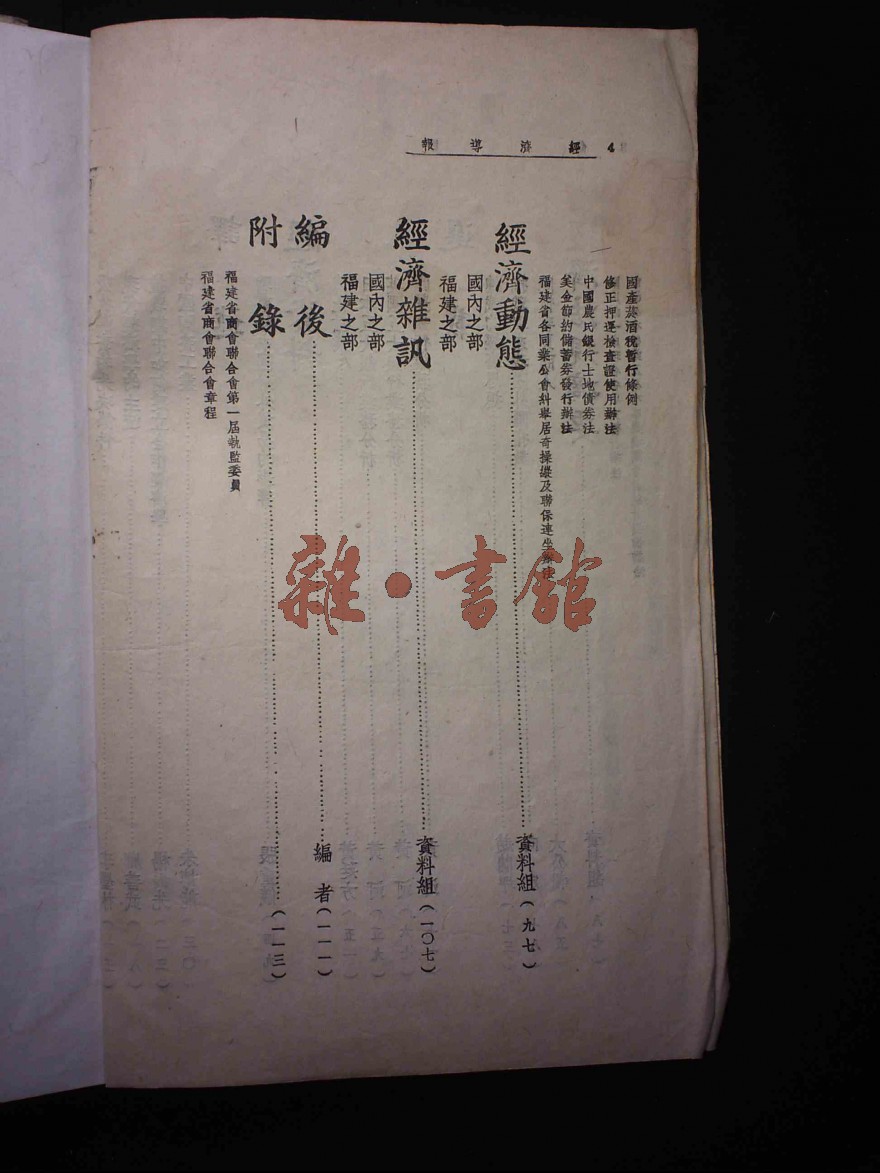 經濟導報 4
國產菸酒稅暫行條例
修正押運檢查證使用辦法
中國農民銀行土地債券法
美金節約儲蓄券發行辦法
福建省各同業公會糾舉居奇操縱及聯保連坐辦法
經濟動態……資料組(九七)
國內之部
福建之部
經濟雜訊……資料組(一〇七)
國內之部
福建之部
編後……編者(一一一)
附錄……(一一三)
福建省商會聯合會第一屆執監委員
福建省商會聯合會章程
雜·書館